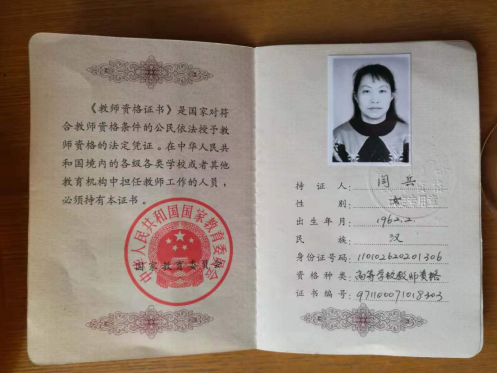 《教师资格证书》是国家对符
合教师资格条件的公民依法授予教
师资格的法定凭证。在中华人民共
和国境内的各级各类学校或者其他
教育机构中担任教师工作的人员，
必须持有本证书。
中华人民共和国国家教育委员会
国家教育委员会
持证人： 闫兵
性别： 女
出生年月： 1962.2.
民族： 汉
身份证号码： 110102620201306
资格种类： 高等学校教师资格
证书编号： 971100071018303